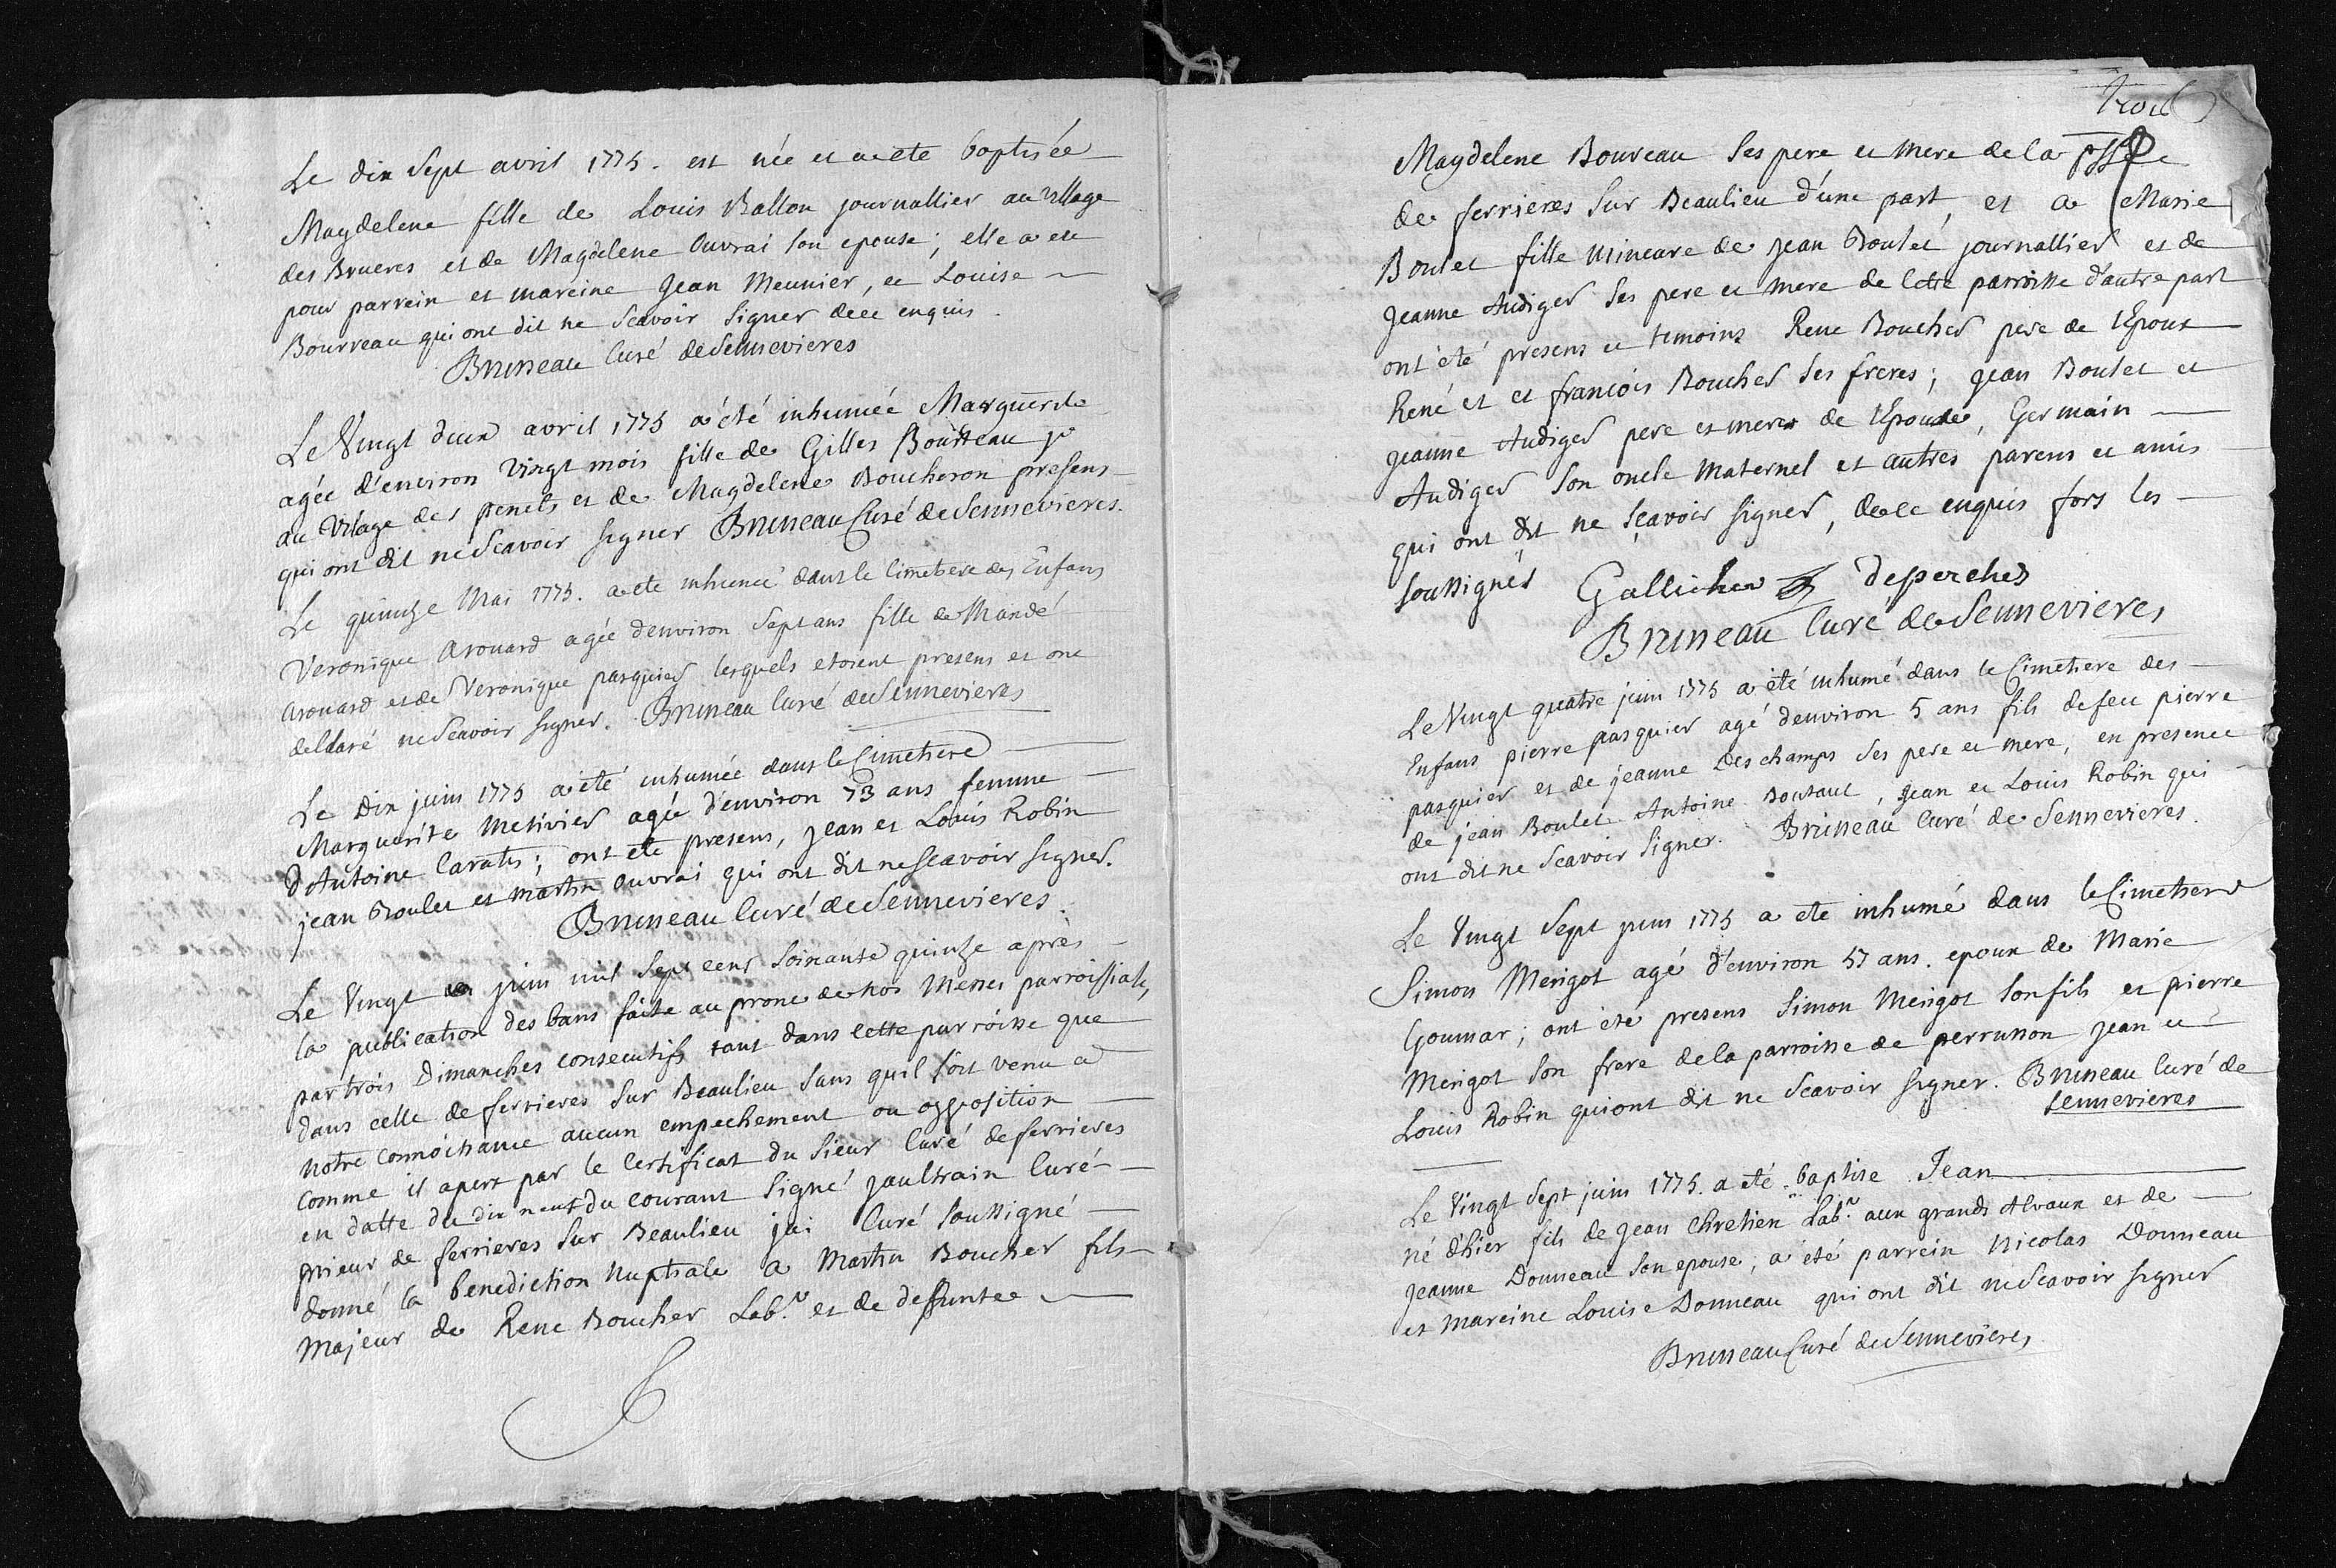 Le dix Sept avril 1775. est née et a ete baptisée
Magdelene fille de Louis Ballon journallier au village
des Brueres et de Magdelene Ouvrai son epouse; elle a eu
pour parrein et mareine Jean Meunier, et Louise
Bourreau qui ont dit ne Scavoir Signer de ce enquis.
Bruneau Curé de Sennevieres
Le Vingt deux avril 1775 a été inhumée Marguerite
agée d'environ vingt mois fille de Gilles Bourreau jr
au Vilage des penets et de Magdelene Boucheron presens
qui ont dit ne Scavoir signer Bruneau Curé de Sennevieres.
Le quinze Mai 1775. a ete inhumée dans le Cimetiere des Enfans
Veronique Arouard agée d'environ Sept ans fille de Mandé
Arouard et de Veronique pasquier lesquels etoient presens et ont
declaré ne Scavoir signer. Bruneau Curé de Sennevieres
Le Dix juin 1775 a été inhumée dans le Cimetiere
Marguerite Metivier agée d'environ 73 ans femme
d'Antoine Caratis; ont eté presens, jean et Louis Robin
jean Boulet et martin Ouvrai qui ont dit ne scavoir signer.
Bruneau Curé de Sennevieres.
Le Vingt juin mil Sept cens Soixante quinze après
la publication des bans faite au prone de nos Messes parroissiale,
par trois Dimanches consecutifs tant dans cette parroisse que
dans celle de ferrieres Sur Beaulieu Sans quil soit venu a
notre connoissance aucun empechement ou opposition
comme il apert par le Certificat du Sieur Curé de ferrieres
en datte du dix neuf du courant Signé jaultrain Curé
prieur de ferrieres Sur Beaulieu jai Curé Soussigné
donné la benediction Nuptiale a Martin Boucher fils
Majeur de Rene Boucher Labr. et de deffuntee
Magdelene Bouveau Ses pere et mere de la psse
de ferrieres Sur Beaulieu d'une part, et a Marie
Boulet fille Mineure de jean Boulet journallier et de
Jeanne Audiger Ses pere et mere de Cette parroisse d'autre part
ont été presens et temoins Rene Boucher pere de l'Epoux
René et et francois Boucher Ses freres; jean Boulet et
jeanne Audiger pere et mere de l'Epouse, Germain
Audiger Son oncle Maternel et autres parens et amis
qui ont dit ne sçavoir signer, de ce enquis fors les
soussignés Gallicher desperches
Bruneau Curé de Sennevieres
Le Vingt quatre juin 1775 a été inhumé dans le Cimetiere des
Enfans pierre pasquier agé d'environ 5 ans fils de feu pierre
pasquier et de jeanne Deschamps Ses pere et mere, en presence
de jean Boulet Antoine Boutault, Jean et Louis Robin qui
ont dit ne Scavoir Signer. Bruneau Curé de Sennevieres.
Le Vingt Sept juin 1775 a ete inhumé dans le Cimetiere
Simon Merigot agé d'environ 57 ans. epoux de Marie
Goumar; ont été presens Simon Merigot Son fils et pierre
Merigot Son frere de la parroisse de perrusson jean et
Louis Robin qui ont dit ne Scavoir signer. Bruneau Curé de
Sennevieres
Le Vingt Sept juin 1775. a été baptisé Jean
né d'hier fils de Jean Chretien Labr. aux grands Alvaux et de
Jeanne Donneau Son epouse; a été parrein Nicolas Donneau
et mareine Louise Donneau qui ont dit ne Scavoir signer
Bruneau Curé de Sennevieres